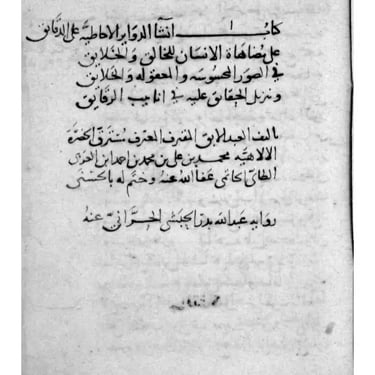 كتاب انشا الدواير الاحاطية على الدقايق
على مضاهاة الانسان للخالق والخلايق
في الصور المحسوسه والمعقوله والخلايق
وتنزيل الحقايق عليه في انابيب الرقايق
تاليف العبد الابق المقترف المعترف مسترق الحضرة
الالاهيه محمد بن علي بن محمد بن احمد ابن العربي
الطائي الحاتمي عفا الله عنه وختم له بالحسنى
رواية عبدالله بدر الحبشي الحراني عنه